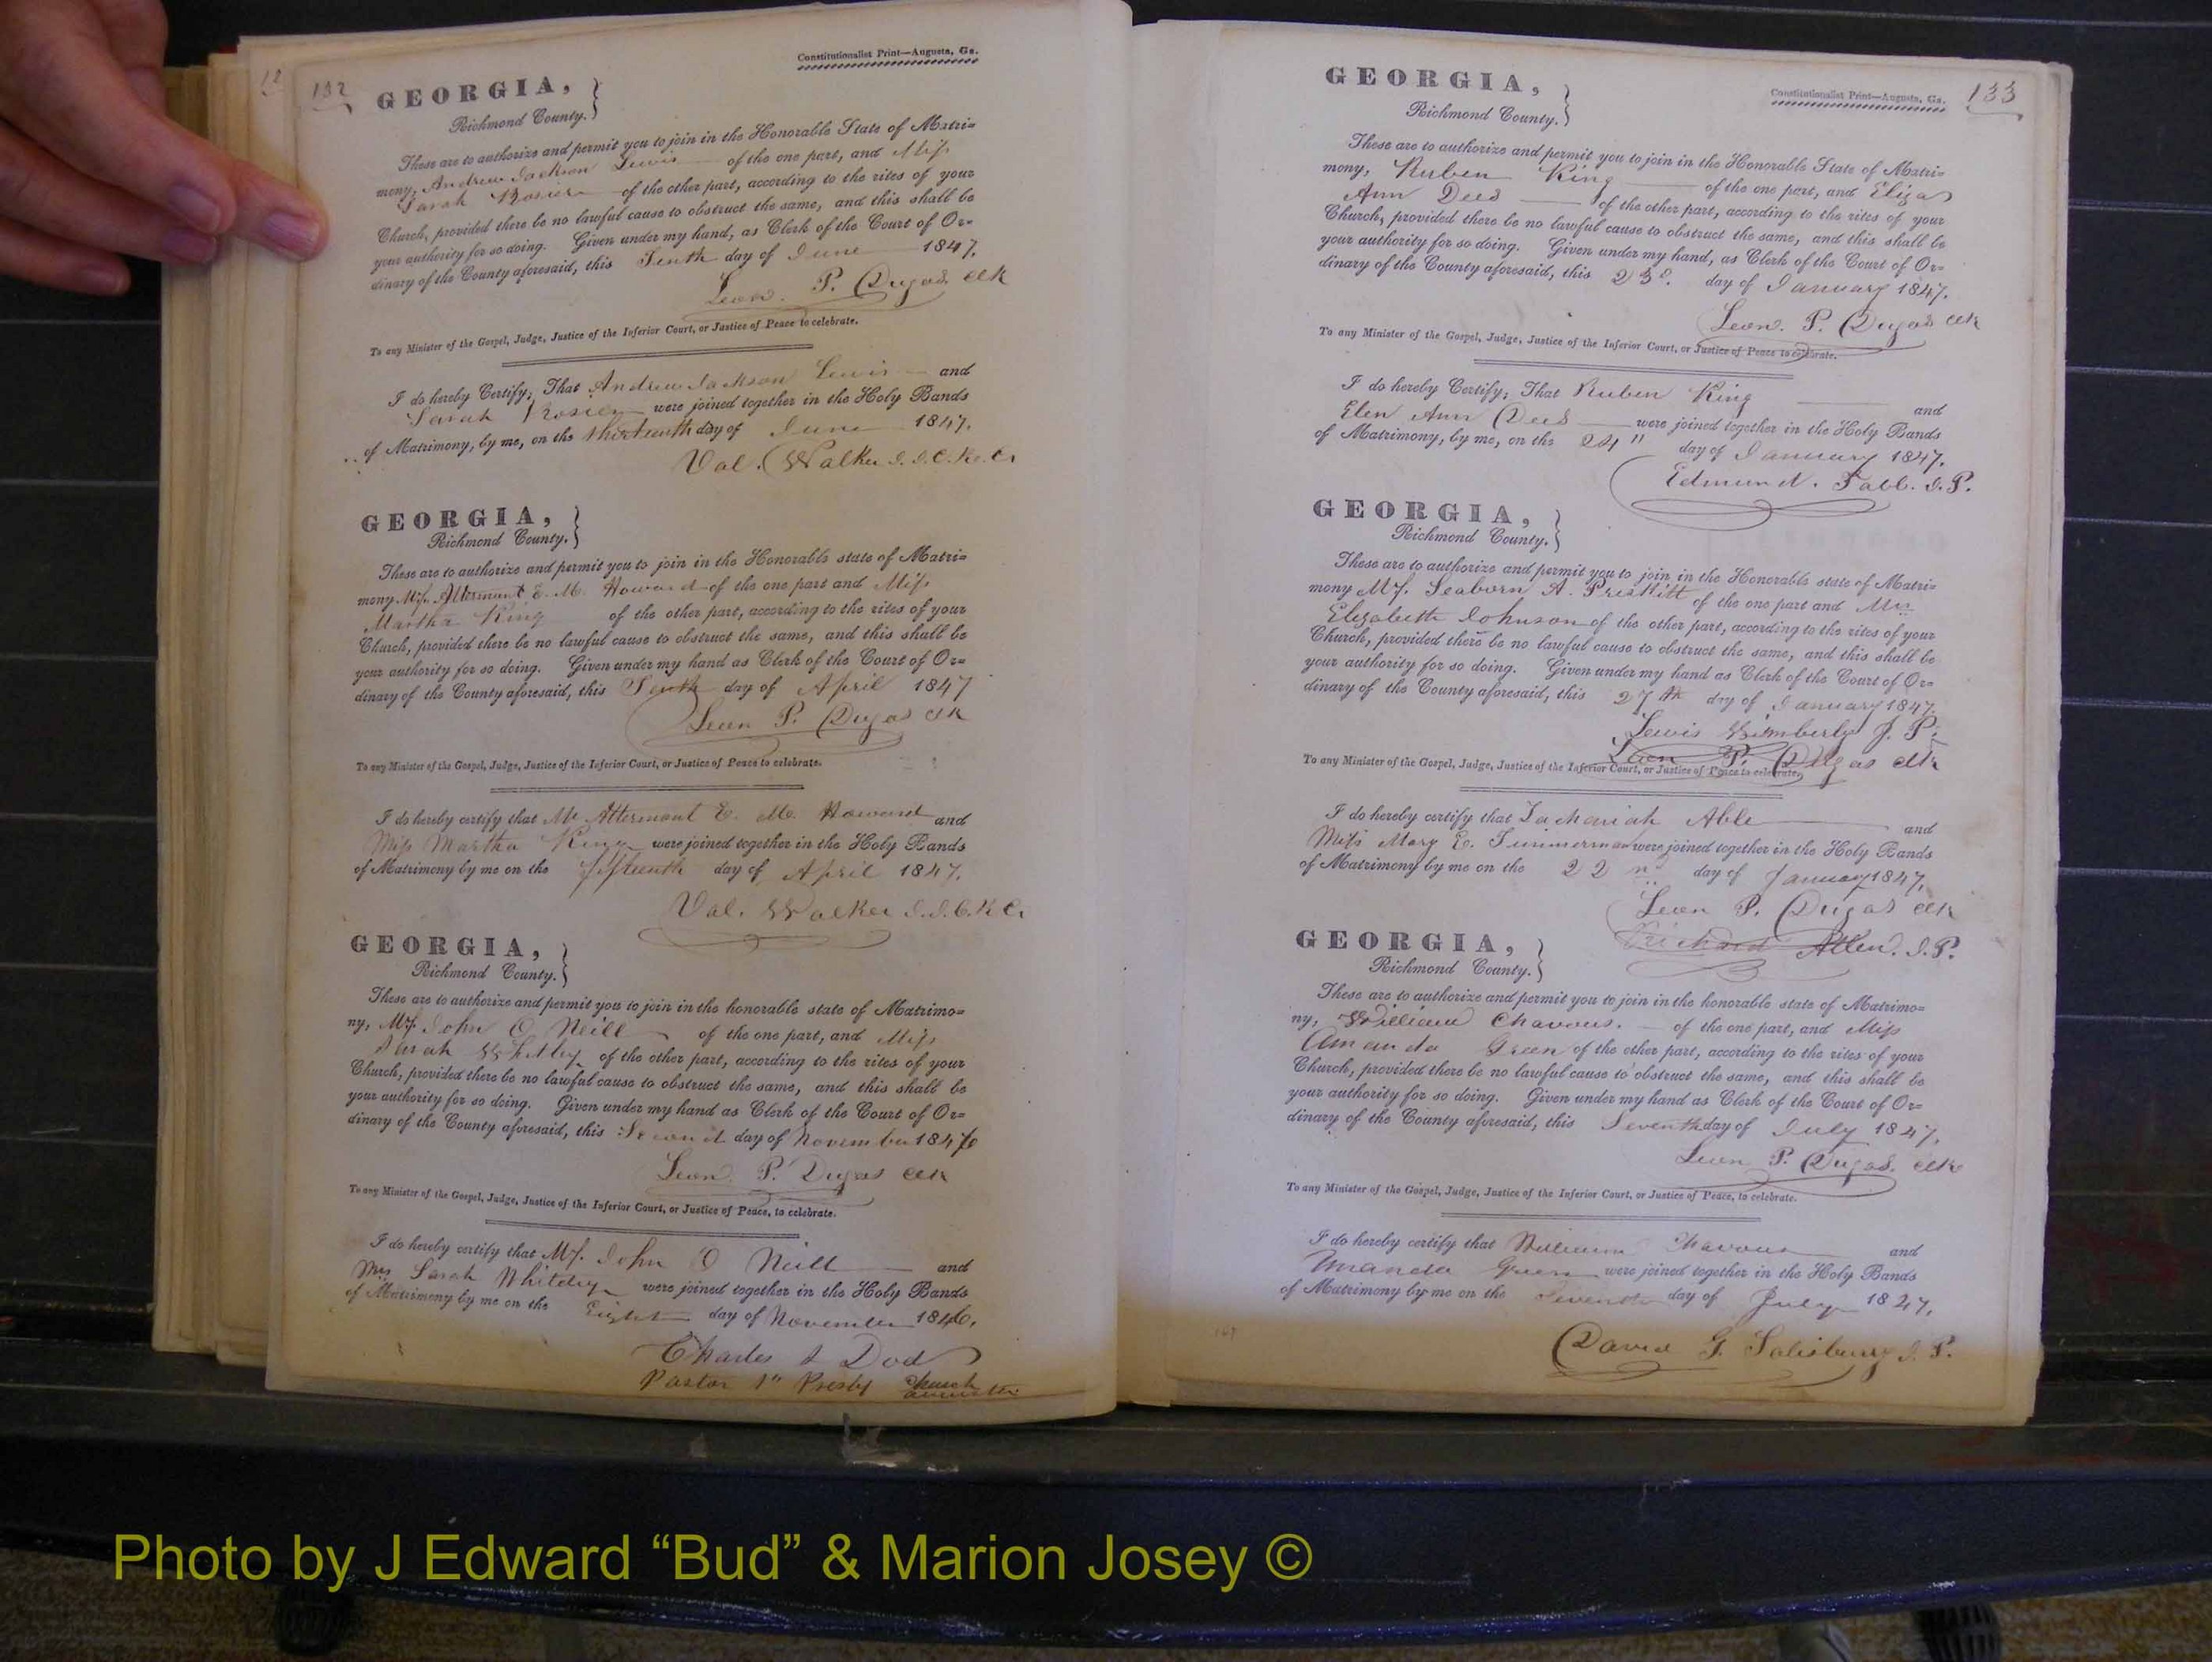 132
Constitutionalist Print—Augusta, Ga.
GEORGIA,
Richmond County.
These are to authorize and permit you to join in the Honorable State of Matri=
mony, Andrew Jackson Lewis of the one part, and Miss
Sarah Rosier of the other part, according to the rites of your
Church, provided there be no lawful cause to obstruct the same, and this shall be
your authority for so doing. Given under my hand, as Clerk of the Court of Or=
dinary of the County aforesaid, this Tenth day of June 1847.
Leon. P. Dugas Clk
To any Minister of the Gospel, Judge, Justice of the Inferior Court, or Justice of Peace to celebrate.
I do hereby Certify, That Andrew Jackson Lewis and
Sarah Rosier were joined together in the Holy Bands
of Matrimony, by me, on the thirteenth day of June 1847.
Val. Walker J. I. C. R. C.
GEORGIA,
Richmond County.
These are to authorize and permit you to join in the Honorable state of Matri=
mony Mr. Attermont E. M. Howard of the one part and Miss
Martha King of the other part, according to the rites of your
Church, provided there be no lawful cause to obstruct the same, and this shall be
your authority for so doing. Given under my hand as Clerk of the Court of Or=
dinary of the County aforesaid, this Tenth day of April 1847
Leon P. Dugas Clk
To any Minister of the Gospel, Judge, Justice of the Inferior Court, or Justice of Peace to celebrate.
I do hereby certify that Mr Attermont E. M. Howard and
Miss Martha King were joined together in the Holy Bands
of Matrimony by me on the fifteenth day of April 1847.
Val. Walker J. I. C. R. C.
GEORGIA,
Richmond County.
These are to authorize and permit you to join in the honorable state of Matrimo=
ny, Mr. John O Neill of the one part, and Miss
Sarah Whitley of the other part, according to the rites of your
Church, provided there be no lawful cause to obstruct the same, and this shall be
your authority for so doing. Given under my hand as Clerk of the Court of Or=
dinary of the County aforesaid, this Second day of November 1846
Leon P. Dugas Clk
To any Minister of the Gospel, Judge, Justice of the Inferior Court, or Justice of Peace, to celebrate.
I do hereby certify that Mr. John O Neill and
Miss Sarah Whitley were joined together in the Holy Bands
of Matrimony by me on the Eight day of November 1846.
Charles S Dod
Pastor 1st Presby Church
Augusta
133
Constitutionalist Print—Augusta, Ga.
GEORGIA,
Richmond County.
These are to authorize and permit you to join in the Honorable State of Matri=
mony, Ruben King of the one part, and Eliza
Ann Deed of the other part, according to the rites of your
Church, provided there be no lawful cause to obstruct the same, and this shall be
your authority for so doing. Given under my hand, as Clerk of the Court of Or=
dinary of the County aforesaid, this 23d. day of January 1847.
Leon. P. Dugas Clk
To any Minister of the Gospel, Judge, Justice of the Inferior Court, or Justice of Peace to celebrate.
I do hereby Certify, That Ruben King and
Elen Ann Deed were joined together in the Holy Bands
of Matrimony, by me, on the 24" day of January 1847.
Edmund. Tabb. J. P.
GEORGIA,
Richmond County.
These are to authorize and permit you to join in the Honorable state of Matri=
mony Mr. Seaborn A. Preskitt of the one part and Miss
Elizabeth Johnson of the other part, according to the rites of your
Church, provided there be no lawful cause to obstruct the same, and this shall be
your authority for so doing. Given under my hand as Clerk of the Court of Or=
dinary of the County aforesaid, this 27th day of January 1847.
Lewis Wimberly J. P.
Leon P. Dugas Clk
To any Minister of the Gospel, Judge, Justice of the Inferior Court, or Justice of Peace to celebrate.
I do hereby certify that Zachariah Able and
Miss Mary E. Timmerman were joined together in the Holy Bands
of Matrimony by me on the 22nd day of January 1847.
Leon P. Dugas Clk
Richard Allen. J. P.
GEORGIA,
Richmond County.
These are to authorize and permit you to join in the honorable state of Matrimo=
ny, William Chavous. of the one part, and Miss
Amanda Green of the other part, according to the rites of your
Church, provided there be no lawful cause to obstruct the same, and this shall be
your authority for so doing. Given under my hand as Clerk of the Court of Or=
dinary of the County aforesaid, this Seventh day of July 1847.
Leon P. Dugas. Clk
To any Minister of the Gospel, Judge, Justice of the Inferior Court, or Justice of Peace, to celebrate.
I do hereby certify that William Chavous and
Amanda Green were joined together in the Holy Bands
of Matrimony by me on the Seventh day of July 1847.
David G. Salisbury J. P.
Photo by J Edward “Bud” & Marion Josey ©